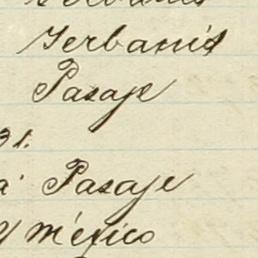 Yerbanís
Pasaje
31.
a Pasaje
y México